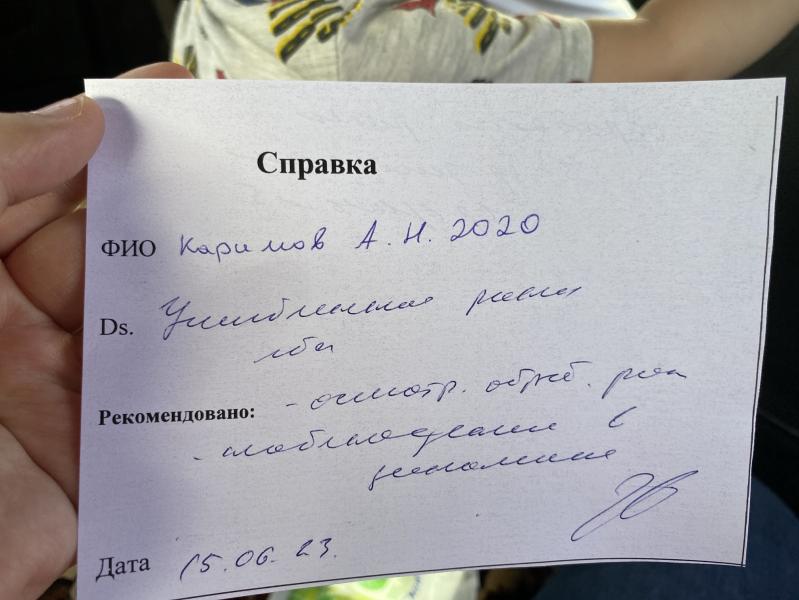 Справка
ФИО Каримов А. Н. 2020
Ds. Ушибленная рана
лба
Рекомендовано: - осмотр. обраб. раны
- наблюдение в
динамике
Дата 15.06.23.